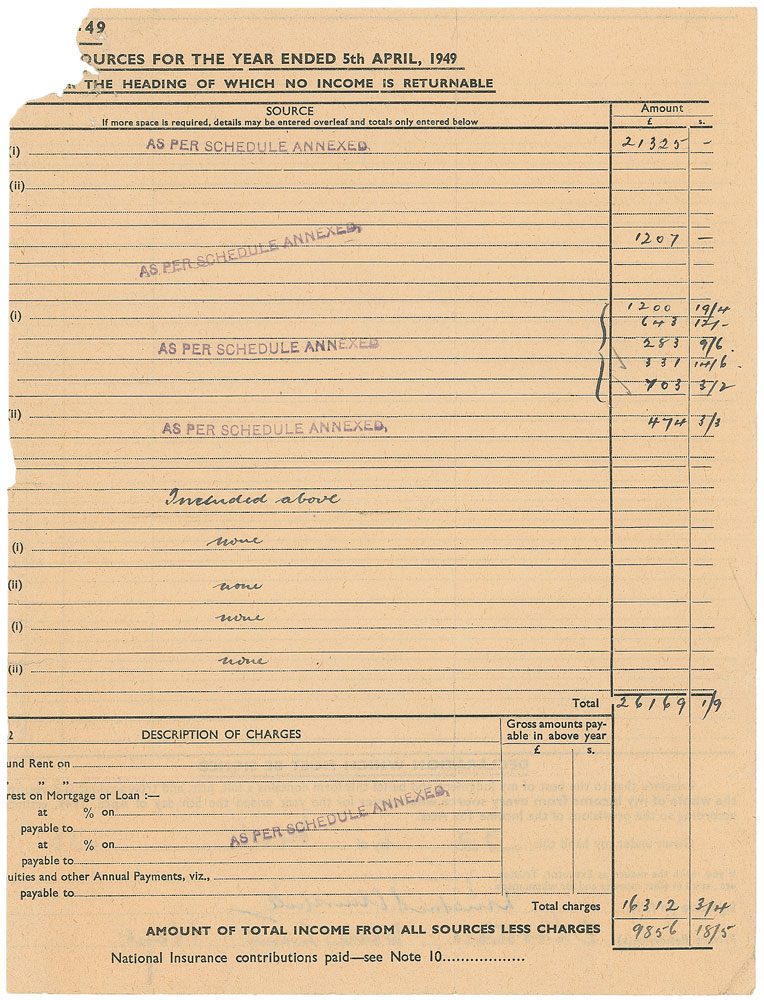 49
OURCES FOR THE YEAR ENDED 5th APRIL, 1949
THE HEADING OF WHICH NO INCOME IS RETURNABLE
SOURCE Amount
If more space is required, details may be entered overleaf and totals only entered below £ s.
(i) AS PER SCHEDULE ANNEXED, 21325 –
(ii)
AS PER SCHEDULE ANNEXED, 1207 –
(i) 1200 19/4
643 12/-
AS PER SCHEDULE ANNEXED 283 9/6
331 14/6
703 3/2
(ii) AS PER SCHEDULE ANNEXED, 474 3/3
Included above
(i) none
(ii) none
(i) none
(ii) none
Total 26169 1/9
2 DESCRIPTION OF CHARGES Gross amounts pay-
able in above year
£ s.
und Rent on
„ „ „
rest on Mortgage or Loan :—
at % on AS PER SCHEDULE ANNEXED,
payable to
at % on
payable to
uities and other Annual Payments, viz.,
payable to
Total charges 16312 3/4
AMOUNT OF TOTAL INCOME FROM ALL SOURCES LESS CHARGES 9856 18/5
National Insurance contributions paid—see Note 10..................